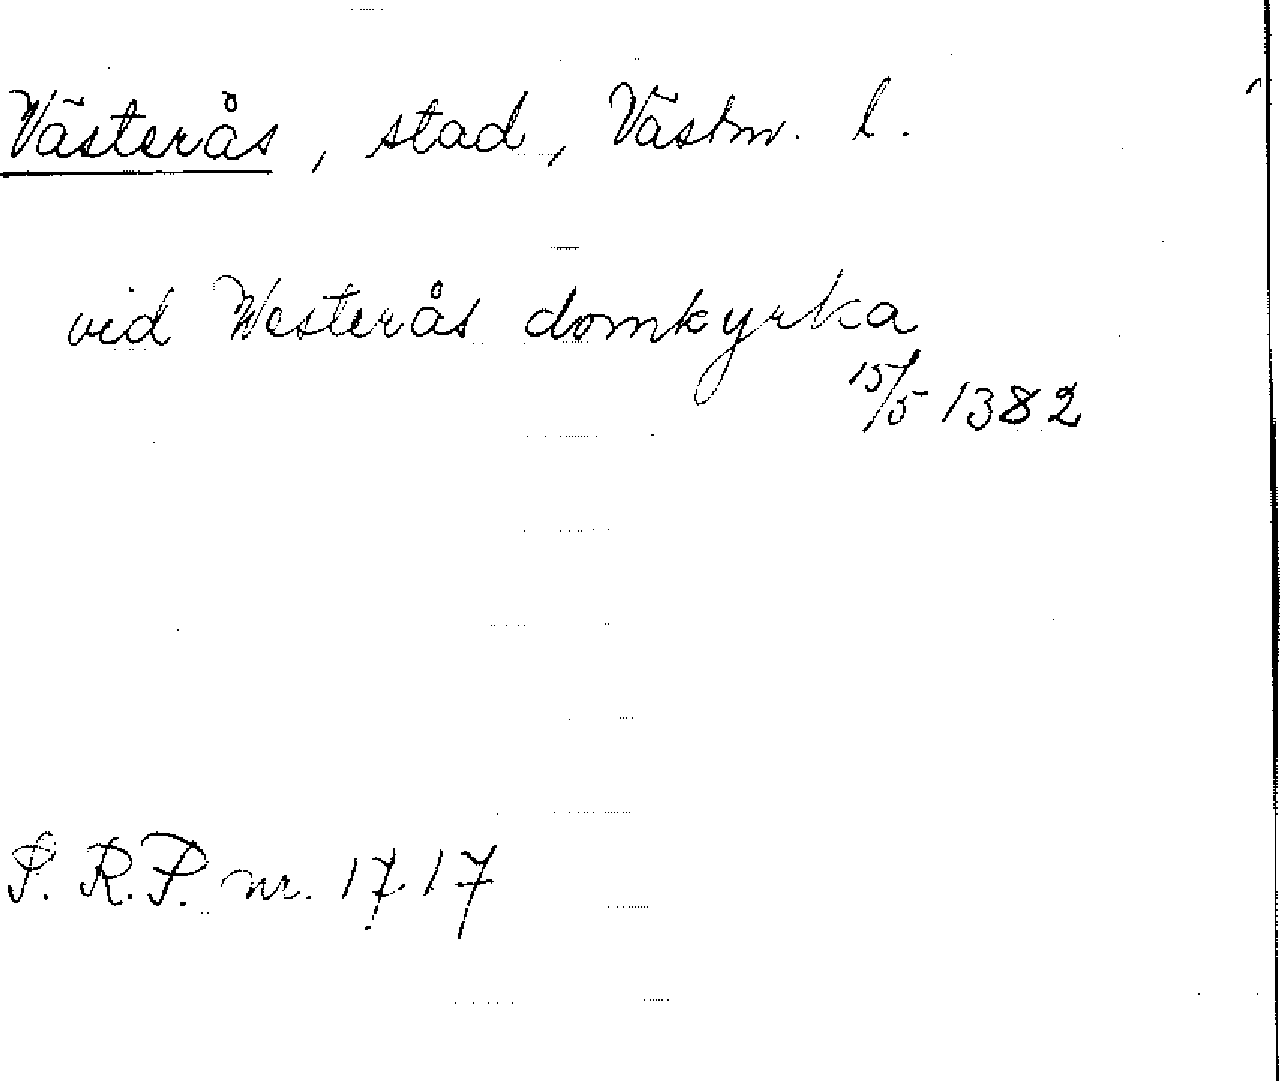 Västerås, stad, Västm. l.
vid Westerås domkyrka
15/5 1382
P. R. P. nr. 1717